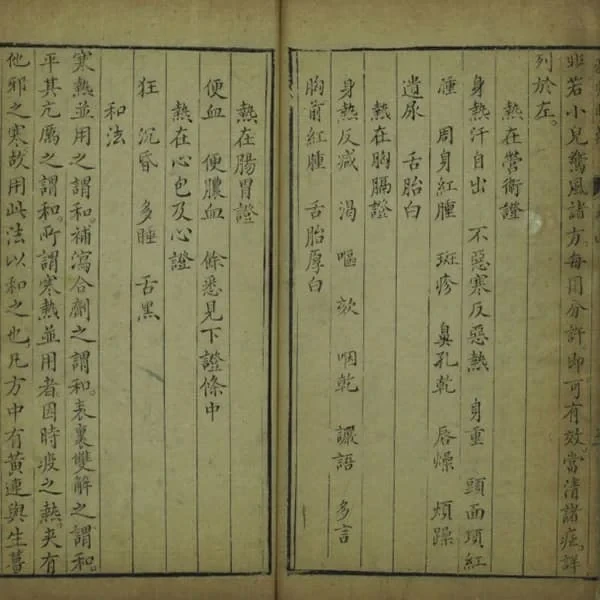 非若小兒驚風諸方。每圓分許即可有效。當清諸症。詳
列於左。
熱在營衛證
身熱汗自出 不惡寒反惡熱 身重 頭面項紅
腫 周身紅腫 斑疹 鼻孔乾 唇燥 煩躁
遺尿 舌胎白
熱在胸膈證
身熱反減 渴 嘔 欬 咽乾 譫語 多言
胸前紅腫 舌胎厚白
熱在腸胃證
便血 便膿血 餘悉見下證條中
熱在心包及心證
狂 沉昏 多睡 舌黑
和法
寒熱並用之謂和。補瀉合劑之謂和。表裏雙解之謂和。
平其亢厲之謂和。所謂寒熱並用者。因時疫之熱。夾有
他邪之寒。故用此法以和之也。凡方中有黃連與生薑